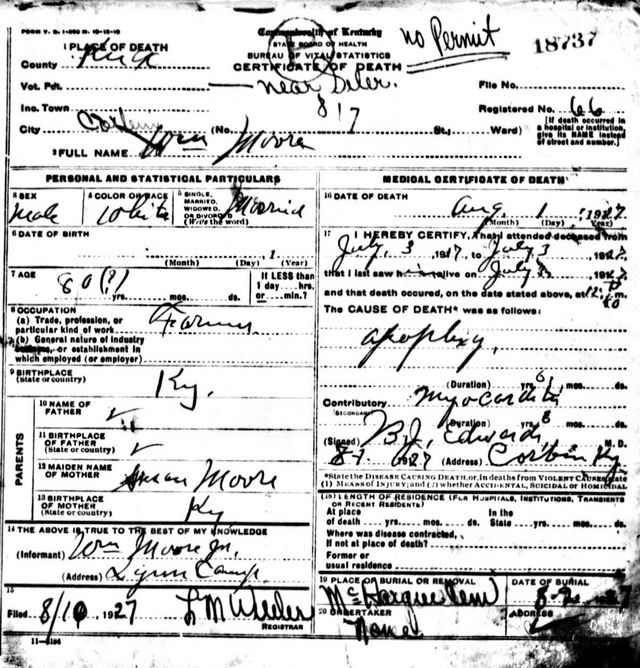 FORM V. S. 1-
Commonwealth of Kentucky
STATE BOARD OF HEALTH
BUREAU OF VITAL STATISTICS
CERTIFICATE OF DEATH
no Permit
18737
1 PLACE OF DEATH
County
Vot. Pct. near Siler.
File No.
Inc. Town 817
Registered No. 66
City (No. St., Ward)
[If death occurred in a hospital or institution, give its NAME instead of street and number.]
2 FULL NAME Wm Moore
PERSONAL AND STATISTICAL PARTICULARS
3 SEX Male
4 COLOR OR RACE White
5 SINGLE, MARRIED, WIDOWED OR DIVORCED (Write the word) Married
6 DATE OF BIRTH
(Month) (Day) , 1 (Year)
7 AGE 80 (?) yrs. mos. ds.
If LESS than 1 day....hrs. or....min.?
8 OCCUPATION
(a) Trade, profession, or particular kind of work Farmer
(b) General nature of industry business, or establishment in which employed (or employer)
9 BIRTHPLACE (State or country) Ky.
PARENTS
10 NAME OF FATHER ✓
11 BIRTHPLACE OF FATHER (State or country) ✓
12 MAIDEN NAME OF MOTHER Susan Moore
13 BIRTHPLACE OF MOTHER (State or country) Ky
14 THE ABOVE IS TRUE TO THE BEST OF MY KNOWLEDGE
(Informant) Wm Moore Jr.
(Address) Lynn Camp
15
Filed 8/10 1927 REGISTRAR
MEDICAL CERTIFICATE OF DEATH
16 DATE OF DEATH
Aug 1 , 1927
(Month) (Day) (Year)
17 I HEREBY CERTIFY, That I attended deceased from
July 3 1927 to July 3 , 1927
that I last saw him alive on July 3 , 1927
and that death occurred, on the date stated above, at 12 m.
The CAUSE OF DEATH* was as follows:
Apoplexy,
(Duration) yrs. mos. ds.
Contributory Myocarditis
(SECONDARY) (Duration) yrs. mos. ds.
(Signed) B.J. Edwards M. D.
8-1 1927 (Address) Corbin Ky
*State the DISEASE CAUSING DEATH, or, in deaths from VIOLENT CAUSES state
(1) MEANS OF INJURY; and (2) whether ACCIDENTAL, SUICIDAL or HOMICIDAL
(18) LENGTH OF RESIDENCE (FOR HOSPITALS, INSTITUTIONS, TRANSIENTS OR RECENT RESIDENTS)
At place of death yrs. mos. ds. In the State yrs. mos. ds.
Where was disease contracted, If not at place of death?
Former or usual residence
19 PLACE OF BURIAL OR REMOVAL McHargue Cem
DATE OF BURIAL 8-2- 27
20 UNDERTAKER None
ADDRESS
11-3184